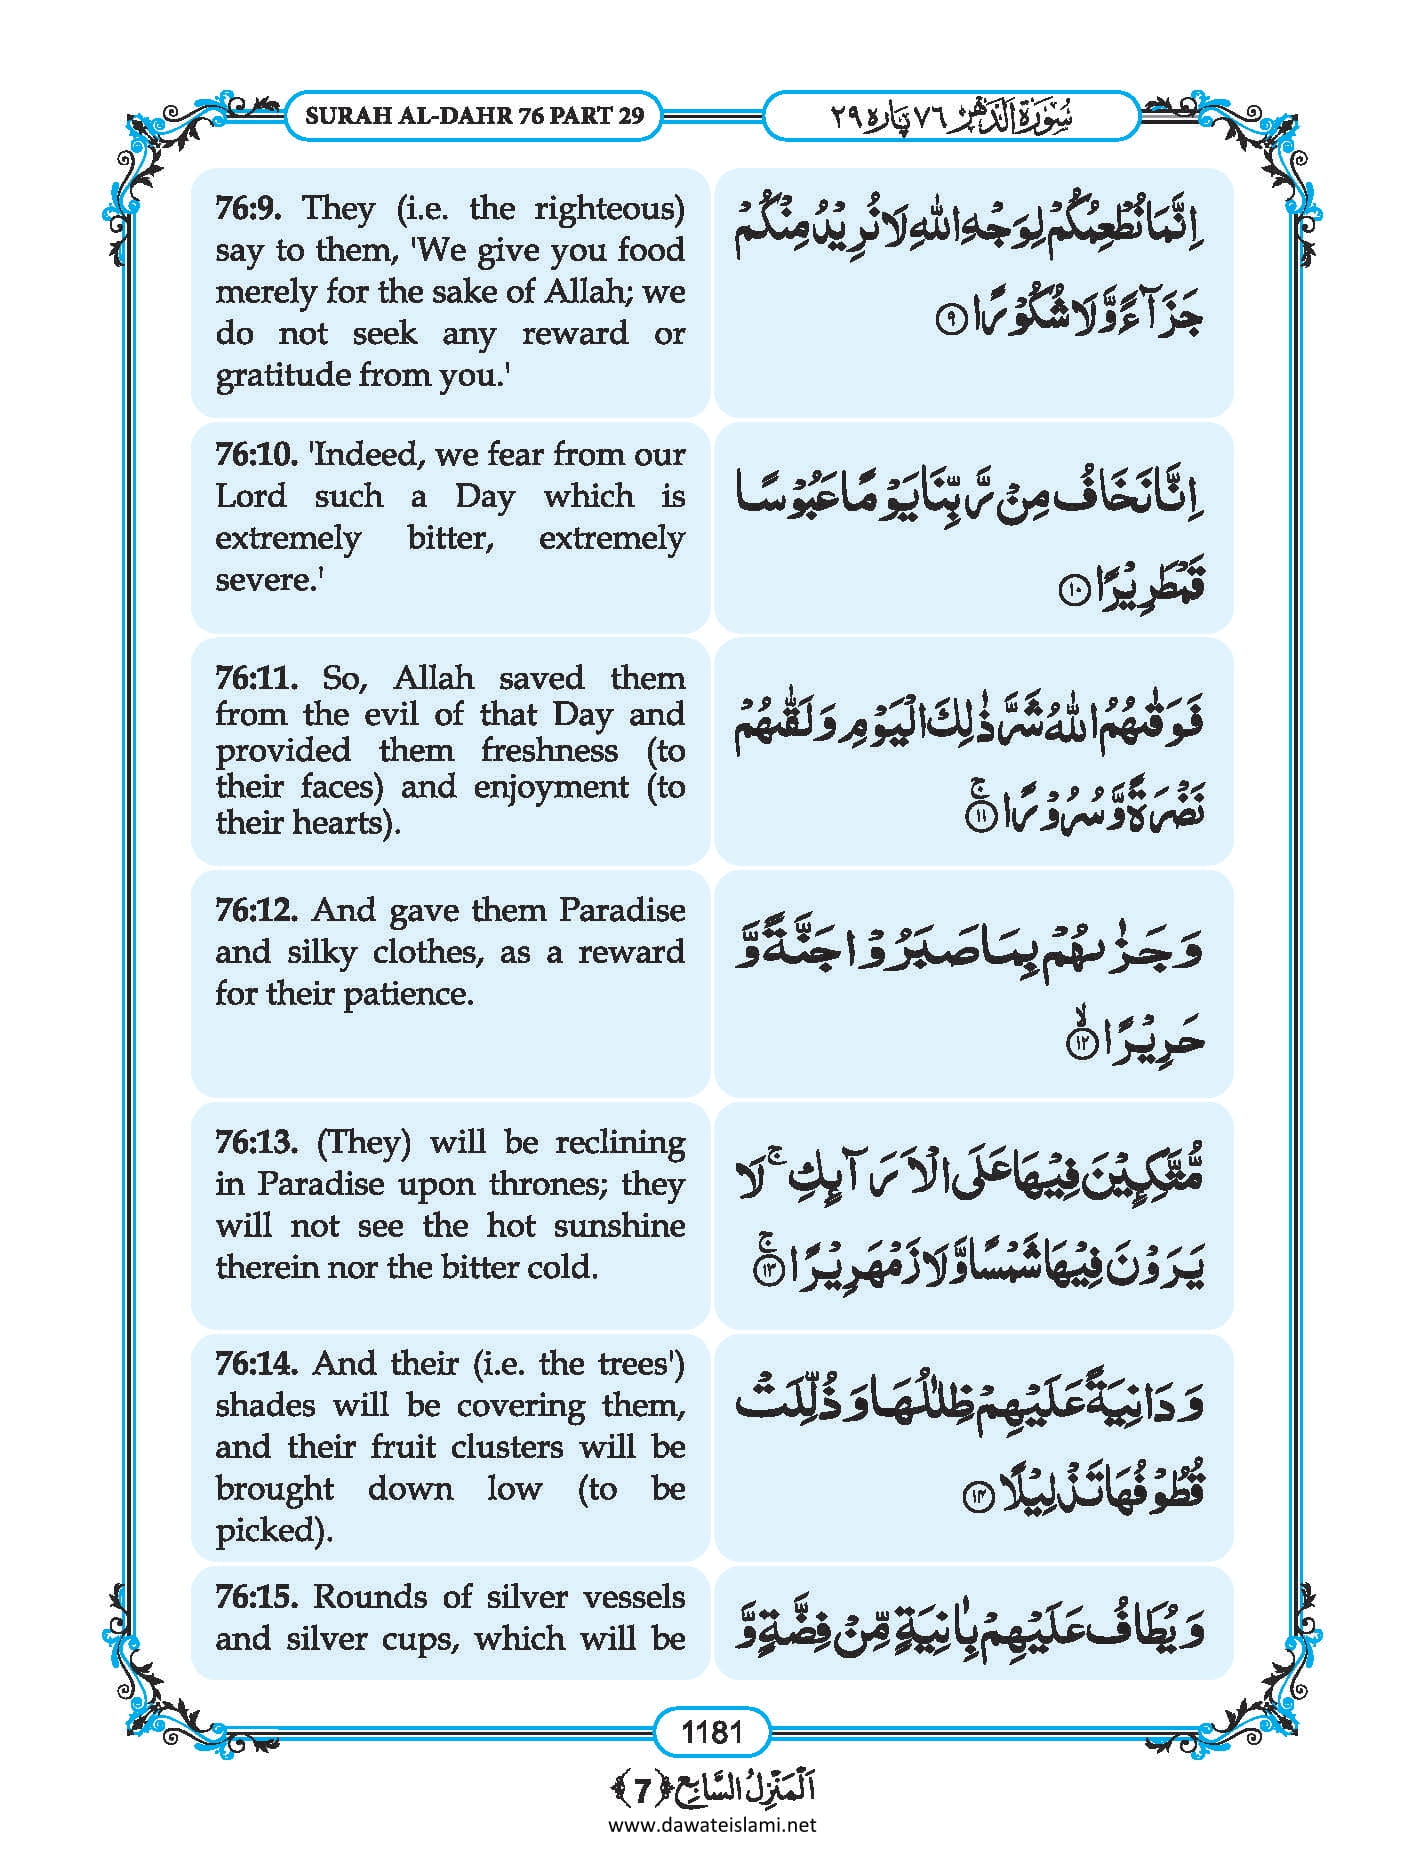 SURAH AL-DAHR 76 PART 29
سُوْرَةُ الدَّهْر ٧٦ پَارہ ٢٩
76:9. They (i.e. the righteous)
say to them, 'We give you food
merely for the sake of Allah; we
do not seek any reward or
gratitude from you.'
اِنَّمَا نُطْعِمُكُمْ لِوَجْهِ اللّٰهِ لَا نُرِيْدُ مِنْكُمْ
جَزَآءً وَّ لَا شُكُوْرًا ﴿۹﴾
76:10. 'Indeed, we fear from our
Lord such a Day which is
extremely bitter, extremely
severe.'
اِنَّا نَخَافُ مِنْ رَّبِّنَا يَوْمًا عَبُوْسًا
قَمْطَرِيْرًا ﴿۱۰﴾
76:11. So, Allah saved them
from the evil of that Day and
provided them freshness (to
their faces) and enjoyment (to
their hearts).
فَوَقٰىهُمُ اللّٰهُ شَرَّ ذٰلِكَ الْيَوْمِ وَ لَقّٰىهُمْ
نَضْرَةً وَّ سُرُوْرًا ﴿ۚ۱۱﴾
76:12. And gave them Paradise
and silky clothes, as a reward
for their patience.
وَ جَزٰىهُمْ بِمَا صَبَرُوْا جَنَّةً وَّ
حَرِيْرًا ﴿ۙ۱۲﴾
76:13. (They) will be reclining
in Paradise upon thrones; they
will not see the hot sunshine
therein nor the bitter cold.
مُّتَّكِـِٕيْنَ فِيْهَا عَلَى الْاَرَآىِٕكِ ۚ لَا
يَرَوْنَ فِيْهَا شَمْسًا وَّ لَا زَمْهَرِيْرًا ﴿ۚ۱۳﴾
76:14. And their (i.e. the trees')
shades will be covering them,
and their fruit clusters will be
brought down low (to be
picked).
وَ دَانِيَةً عَلَيْهِمْ ظِلٰلُهَا وَ ذُلِّلَتْ
قُطُوْفُهَا تَذْلِيْلًا ﴿۱۴﴾
76:15. Rounds of silver vessels
and silver cups, which will be
وَ يُطَافُ عَلَيْهِمْ بِاٰنِيَةٍ مِّنْ فِضَّةٍ وَّ
1181
اَلْمَنْزِلُ السَّابِع ﴿7﴾
www.dawateislami.net